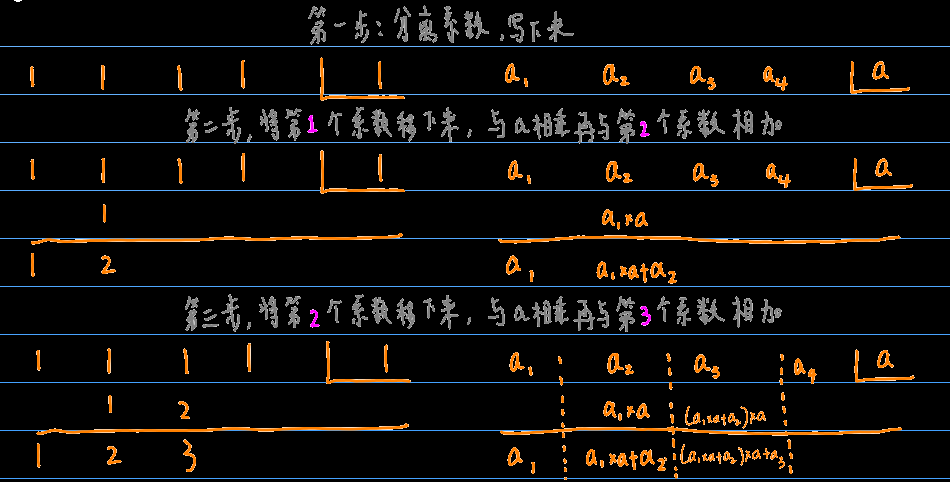 第一步：分离系数，写下来
1 1 1 1 1 a₁ a₂ a₃ a₄ a
第二步，将第1个系数移下来，与a相乘再与第2个系数相加
1 1 1 1 1 a₁ a₂ a₃ a₄ a
1 a₁×a
1 2 a₁ a₁×a+a₂
第三步，将第2个系数移下来，与a相乘再与第3个系数相加
1 1 1 1 1 a₁ a₂ a₃ a₄ a
1 2 a₁×a (a₁×a+a₂)×a
1 2 3 a₁ a₁×a+a₂ (a₁×a+a₂)×a+a₃